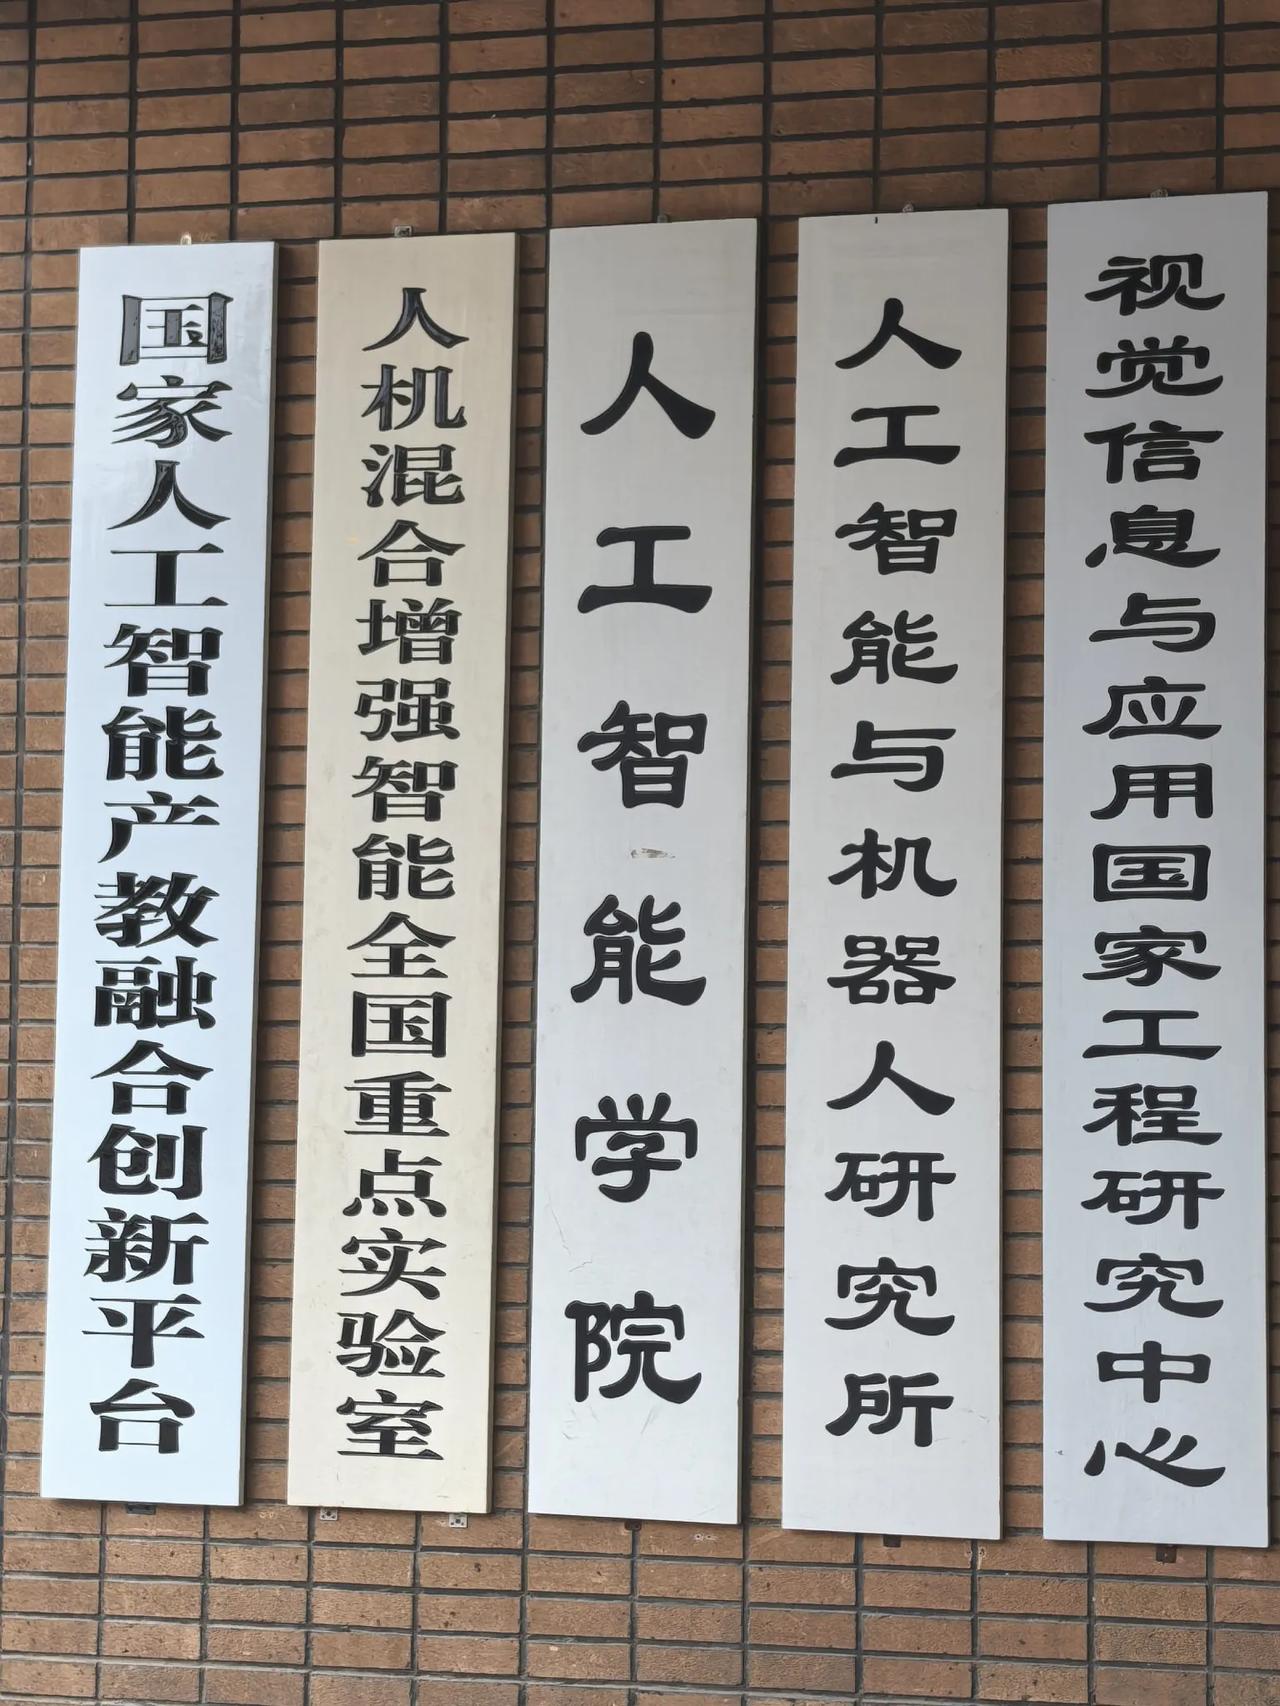 国家人工智能产教融合创新平台
人机混合增强智能全国重点实验室
人工智能学院
人工智能与机器人研究所
视觉信息与应用国家工程研究中心